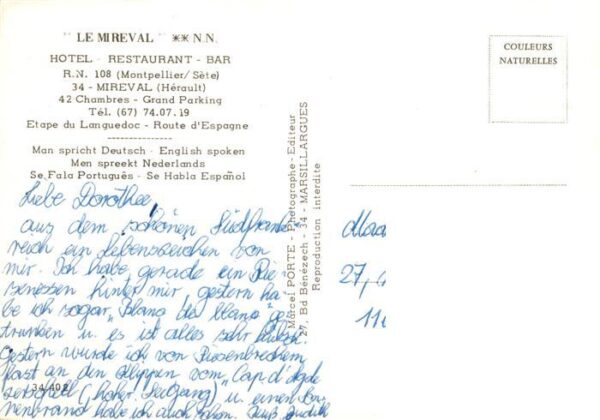 "LE MIREVAL" ** N.N.
HOTEL - RESTAURANT - BAR
R.N. 108 (Montpellier/Sète)
34 - MIREVAL (Hérault)
42 Chambres - Grand Parking
Tél. (67) 74.07.19
Etape du Languedoc - Route d'Espagne
Man spricht Deutsch - English spoken
Men spreekt Nederlands
Se Fala Português - Se Habla Español
Liebe Dorothee,
aus dem schönen Südfrank
reich ein Lebenszeichen von
mir. Ich habe gerade ein Rie
senessen hinter mir, gestern ha
be ich sogar "Blanc de blanc" ge
trunken u. es ist alles sehr hübsch.
Gestern wurde ich von Riesenbrechern
fast an den Klippen vom "Cap d'Agde
zerschellt (hoher Seegang) u. einen Son
nenbrand habe ich auch schon. Gruß Judith
34.402
Marcel PORTE - Photographe-Editeur
27, Bd Bénézech - 34 - MARSILLARGUES
Reproduction interdite
COULEURS
NATURELLES
Maa
27,
11